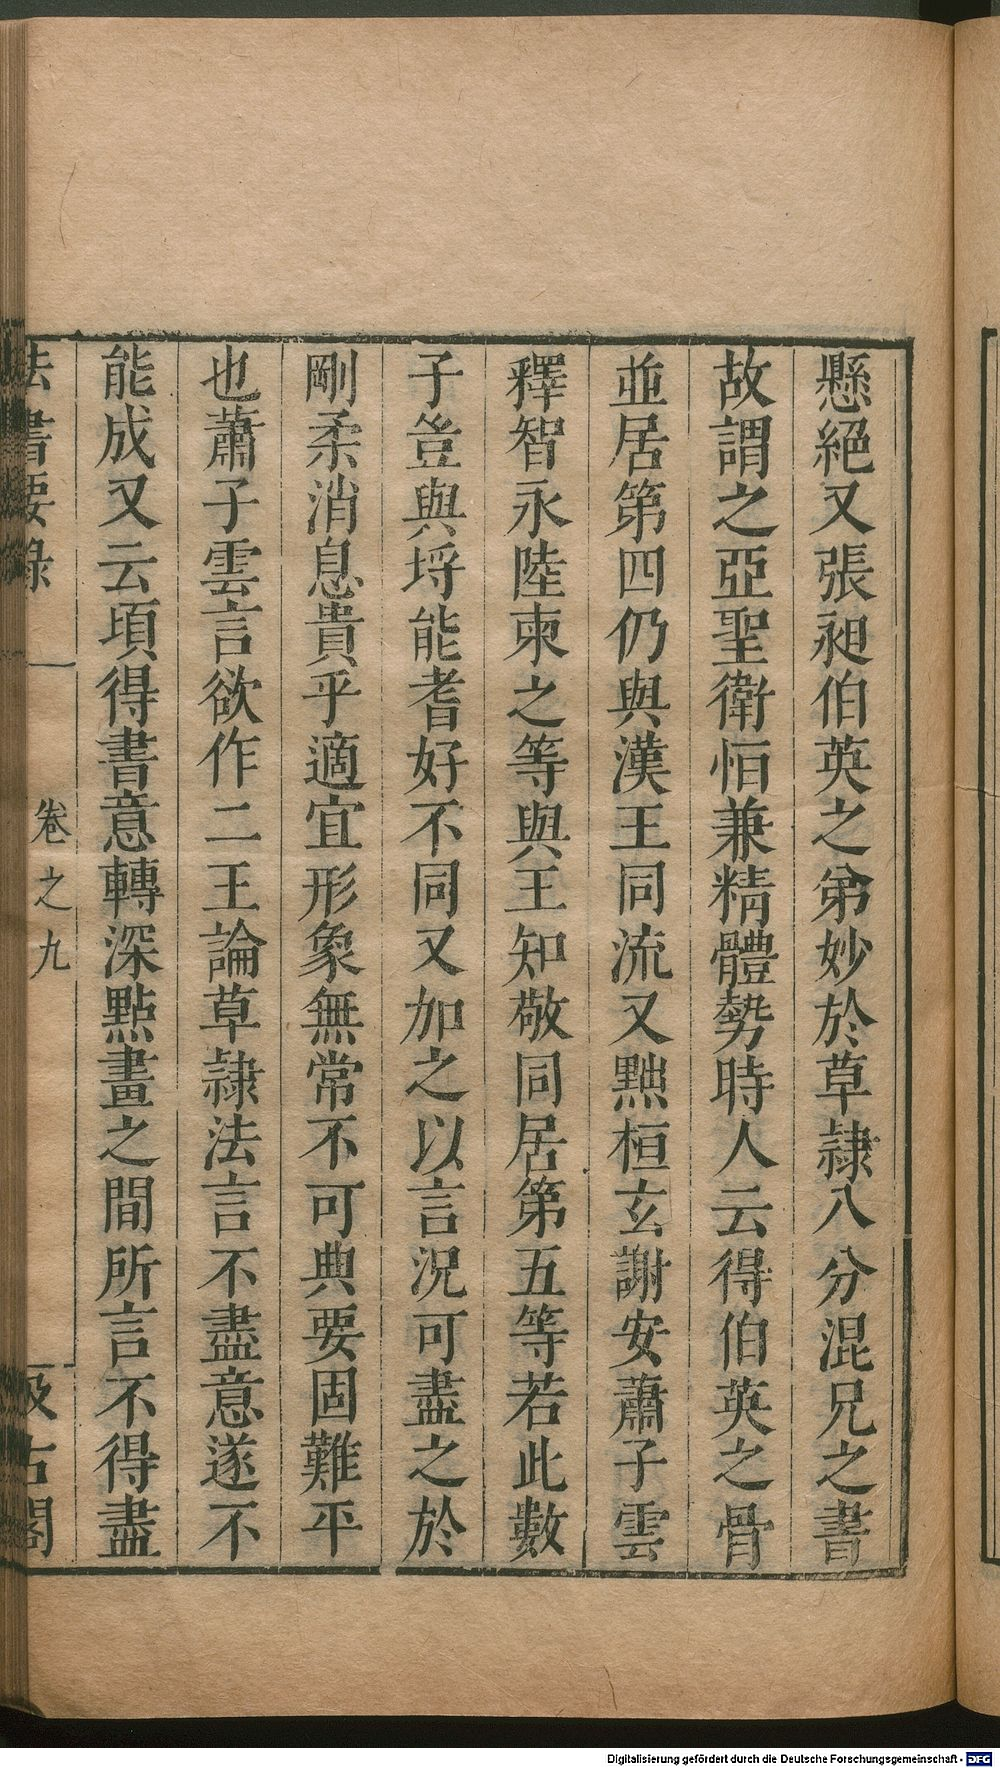 懸絕又張昶伯英之弟妙於草隷八分混兄之書
故謂之亞聖衛恒兼精體勢時人云得伯英之骨
並居第四仍與漢王同流又黜桓玄謝安蕭子雲
釋智永陸柬之等與王知敬同居第五等若此數
子豈與埓能耆好不同又加之以言況可盡之於
剛柔消息貴乎適宜形象無常不可典要固難平
也蕭子雲言欲作二王論草隷法言不盡意遂不
能成又云頃得書意轉深點畫之間所言不得盡
法書要錄
卷之九
汲古閣
Digitalisierung gefördert durch die Deutsche Forschungsgemeinschaft - DFG